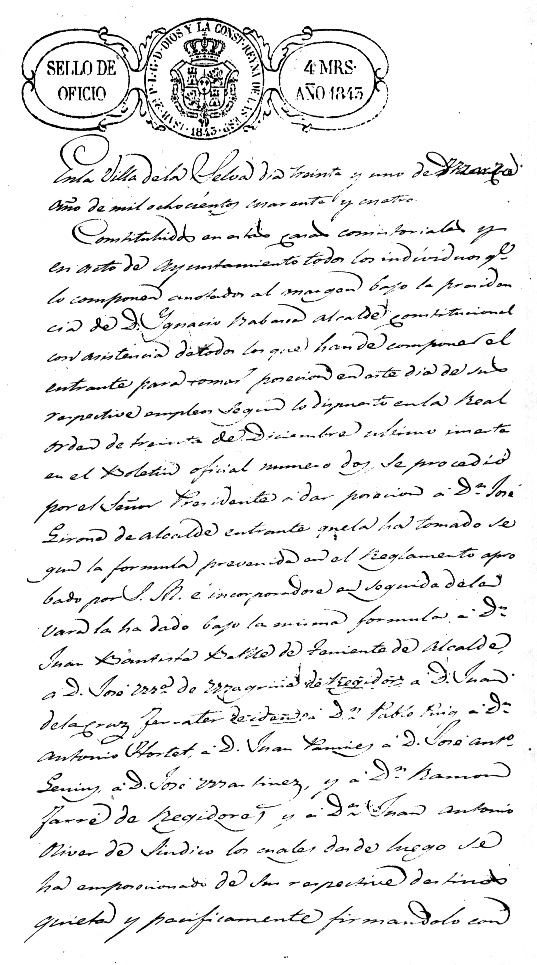 SELLO DE
OFICIO
YSAB. 2ª P. L. G. D. DIOS Y LA CONST. REYNA DE LAS ESP.
1843
4 MRS.
AÑO 1843
En la Villa de la Selva dia treinta y uno de
año de mil ochocientos cuarenta y cuatro.
Constituhidos en estas casas consistoriales y
en acto de Ayuntamiento todos los individuos qe.
lo componen anotados al margen bajo la presiden
cia de D. Ygnacio Alcalde constitucional
con asistencia de todos los que han de componer el
entrante para tomar posecion en este dia de sus
respective empleos segun lo dispuesto en la Real
orden de treinta de Diciembre ultimo inserta
en el Boletin oficial numero dos, se procedió
por el Señor Presidente a dar posecion á Dn. José
Girona de Alcalde entrante que la ha tomado se
gun la formula prevenida en el Reglamento apro
bado por S. M. é incorporadose en seguida de la
vara la ha dado bajo la misma formula á Dn.
Juan Bautista de Teniente de Alcalde,
a D. José de de Regidor, a D. Juan
de la Cruz Ferrater de idem, á Dn. Pablo Puig, a Dn.
Antonio Hortet, á D. Juan Pamies, á D. José Anto.
á D. José Martinez, y á Dn. Ramon
Farré de Regidores, y á Dn. Juan Antonio
Oliver de Sindico los cuales desde luego se
ha emposecionado de sus respective destinos
quieta y pacificamente firmandolo con